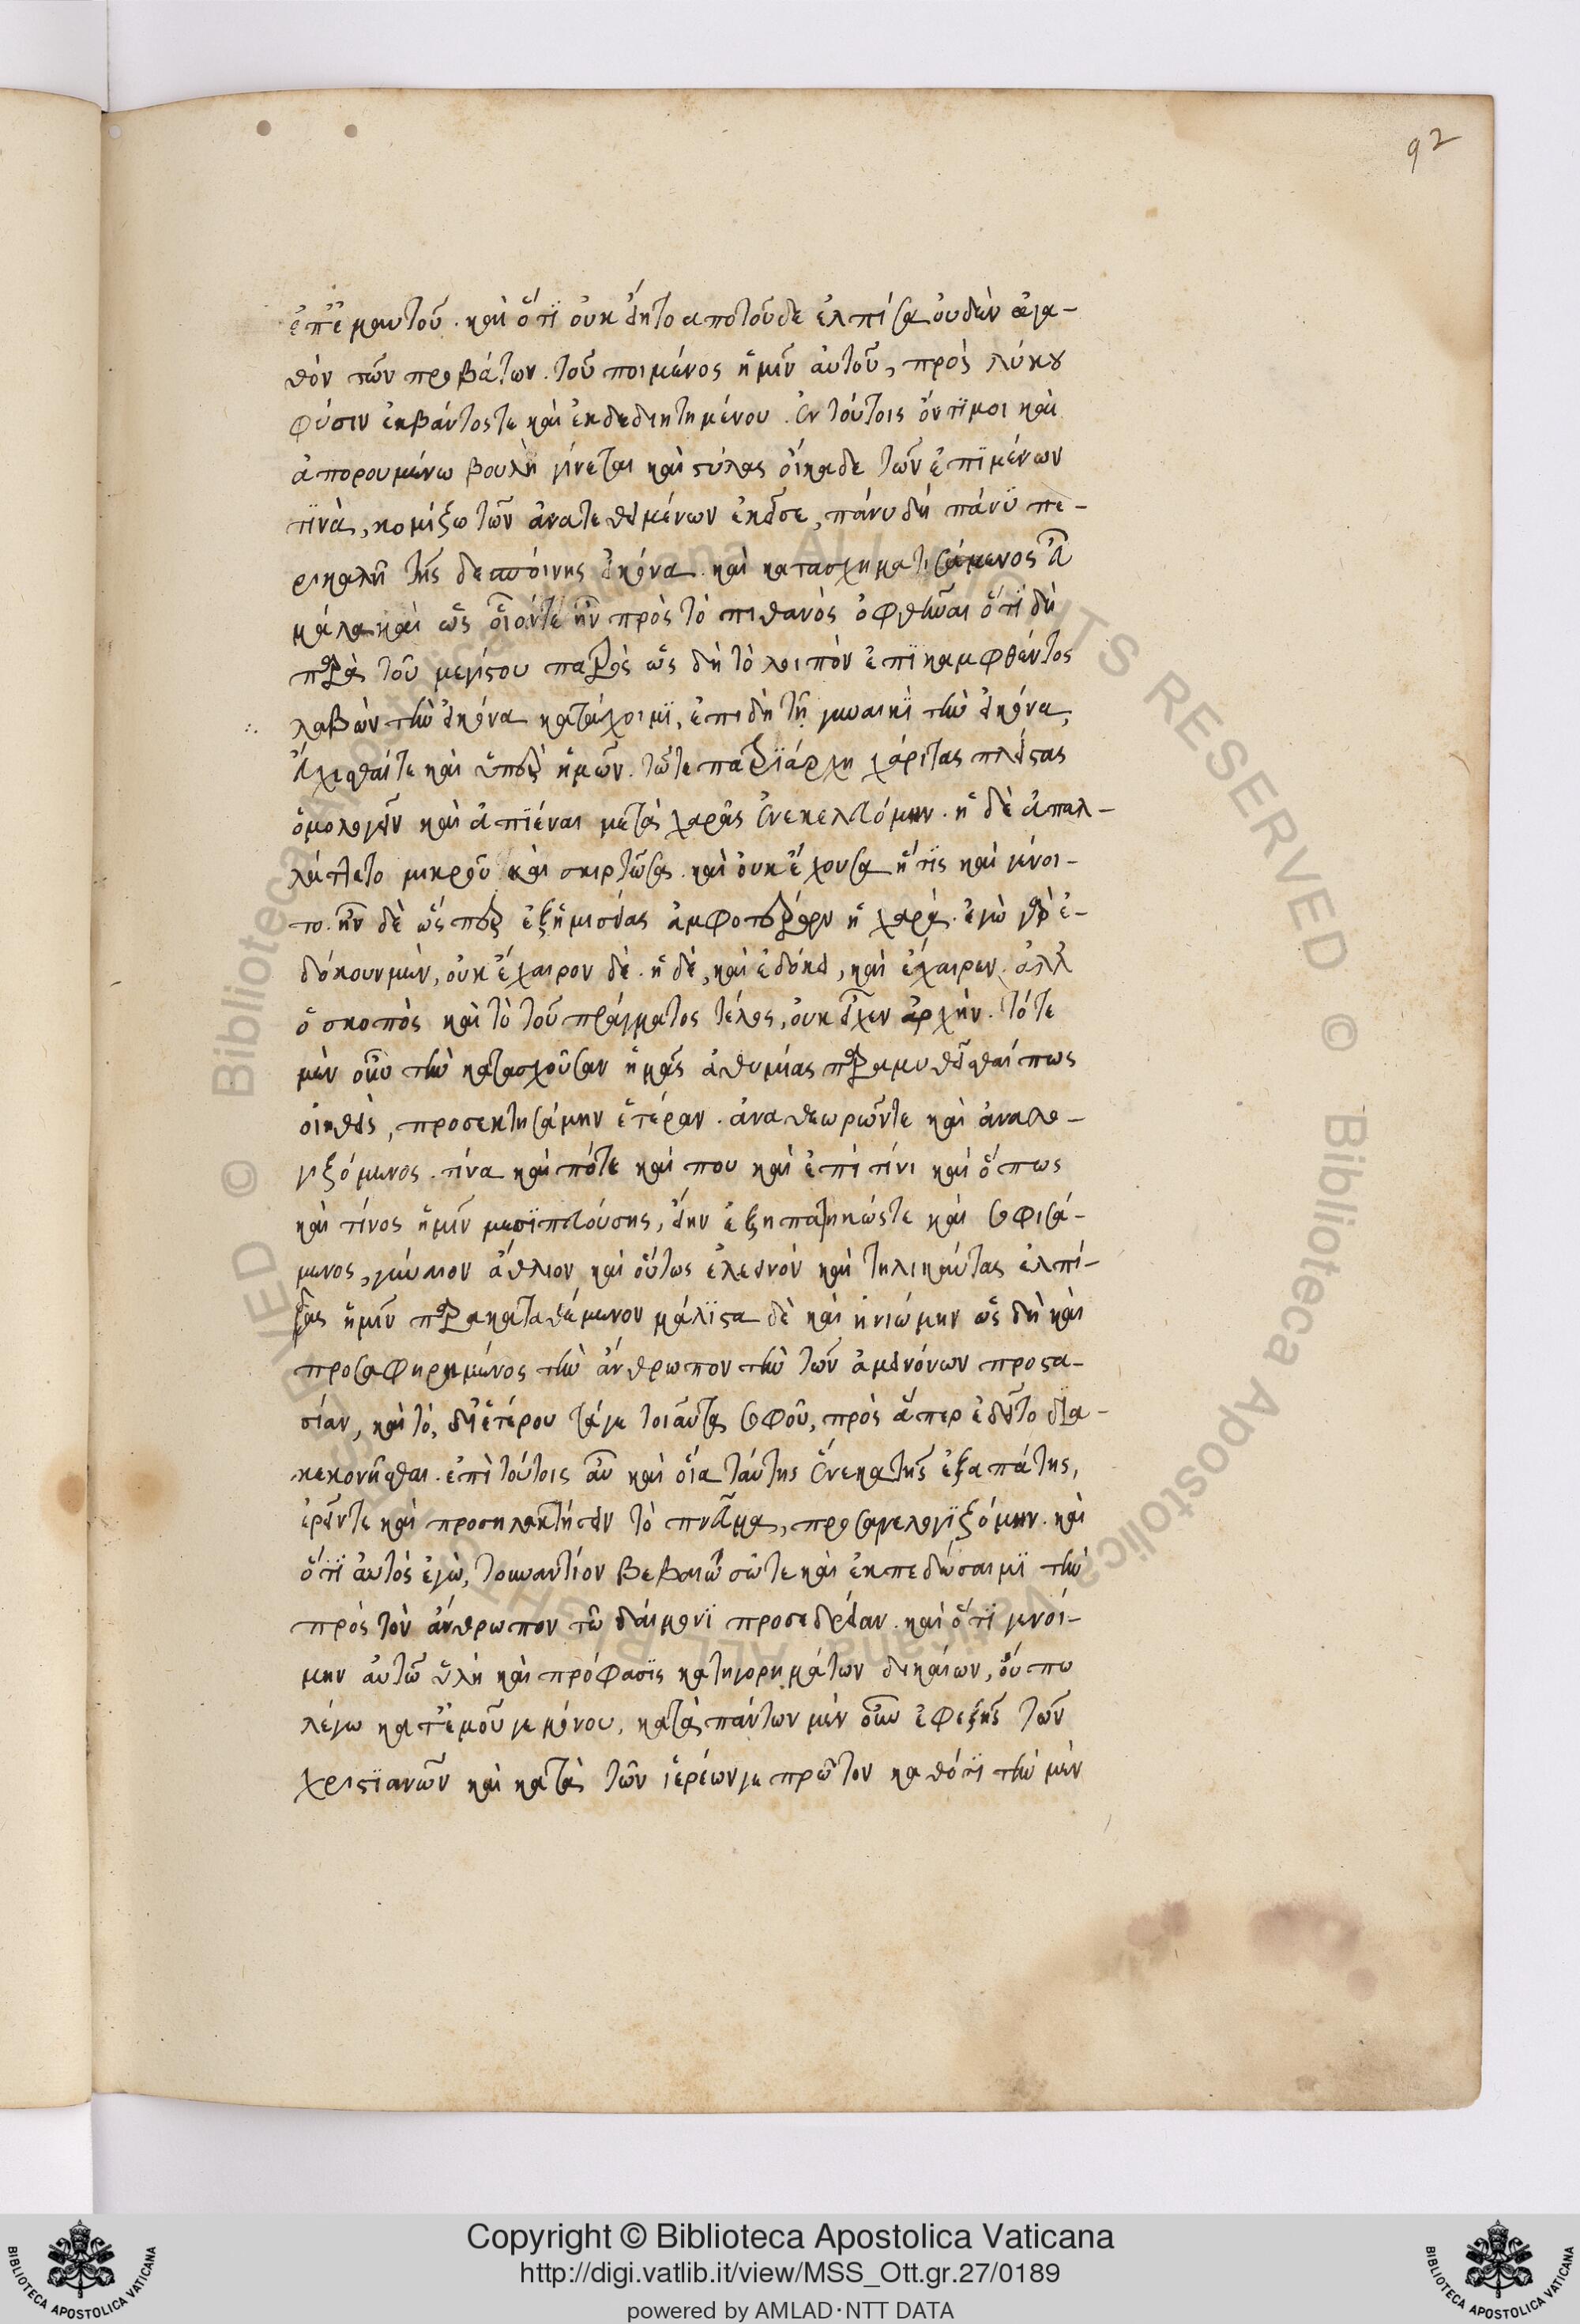 92
ἐπ' ἐμαυτοῦ. καὶ ὅτι οὐκ εἴη τὸ ἀποτοῦδε ἐλπίσαι οὐδὲν ἀγα-
θὸν τῶν προβάτων. τοῦ ποιμένος ἡμῖν αὐτοῦ, πρὸς λύκου
φύσιν ἐκβάντος τε καὶ ἐκδεδιητημένου. ἐν τούτοις ὄντι μοι καὶ
ἀπορουμένω βουλὴ γίνεται καὶ στείλας οἴκαδε τῶν ἐπιμένων
τινὰ, κομίζω τῶν ἀνατεθειμένων ἐκεῖσε, πάνυ δὴ πάνυ πε-
ρικαλῆ τῆς δεσποίνης εἰκόνα. καὶ κατασχηματισάμενος εὖ
μάλα καὶ ὡς οἷόντε ἦν πρὸς τὸ πιθανὸς ὀφθῆναι ὅτι δὴ
παρὰ τοῦ μεγίστου πατρὸς ὡς δὴ τὸ λοιπὸν ἐπικαμφθέντος
λαβὼν τὴν εἰκόνα κατάγοιμι, ἐπιδὴ τῇ γυναικὶ τὴν εἰκόνα,
εὔχεσθαί τε καὶ ὑπὲρ ἡμῶν. τῶτε πατριάρχη χάριτας πλείστας
ὁμολογεῖν καὶ ἀπιέναι μετὰ χαρᾶς ἐνεκελευόμην. ἡ δὲ ἀπαλ-
λάττετο μικροῦ καὶ σκιρτῶσα. καὶ οὐκ ἔχουσα ἥτις καὶ γένοι-
το. ἦν δὲ ὥσπερ ἐξ ἡμισείας ἀμφοτέρων ἡ χαρά. ἐγὼ γὰρ ἐ-
δόκουν μὲν, οὐκ ἔχαιρον δὲ. ἡ δὲ, καὶ ἐδόκει, καὶ ἔχαιρεν. ἀλλ'
ὁ σκοπὸς καὶ τὸ τοῦ πράγματος τέλος, οὐκ εἶχεν ἀρχήν. τότε
μὲν οὖν τὴν κατασχοῦσαν ἡμᾶς ἀθυμίας παραμυθεῖσθαί πως
οἰηθεὶς, προσεκτησάμην ἑτέραν. ἀναθεωρῶν τε καὶ ἀναλο-
γιζόμενος. τίνα καὶ πότε καὶ που καὶ ἐπὶ τίνι καὶ ὅπως
καὶ τίνος ἡμῖν μεσιτευούσης, εἴην ἐξηπατηκώς τε καὶ σοφισά-
μενος, γύναιον ἄθλιον καὶ οὕτως ἐλεεινὸν καὶ τηλικαύτας ἐλπί-
δας ἡμῖν παρακαταθέμενον μάλιστα δὲ καὶ ἠνιώμην ὡς δὴ καὶ
προσαφηρημένος τὴν ἄνθρωπον τὴν τῶν ἀμεινόνων προστα-
σίαν, καὶ τὸ, δι' ἑτέρου τάγε τοιαῦτα σοφοῦ, πρὸς ἅπερ ἐδεῖτο δια-
κεκονῆσθαι. ἐπὶ τούτοις αὖ καὶ οἷα ταύτης ἕνεκα τῆς ἐξαπάτης,
ἐρεῖν τε καὶ προσηλακτήσειν τὸ πνεῦμα, προσανελογιζόμην. καὶ
ὅτι αὐτὸς ἐγὼ, τοὐναντίον βεβαιώσω τε καὶ ἐκπεδώσαιμι τὴν
πρὸς τὸν ἄνθρωπον τῶ δαίμονι προσεδρείαν. καὶ ὅτι γενοί-
μην αὐτῶ ὕλη καὶ πρόφασις κατηγορημάτων δικαίων, οὔπω
λέγω κατ' ἐμοῦ γε μόνου, κατὰ πάντων μὲν οὖν ἐφεξῆς τῶν
χριστιανῶν καὶ κατὰ τῶν ἱερέων γε πρῶτον καθότι τὴν μὲν
Copyright © Biblioteca Apostolica Vaticana
http://digi.vatlib.it/view/MSS_Ott.gr.27/0189
powered by AMLAD·NTT DATA